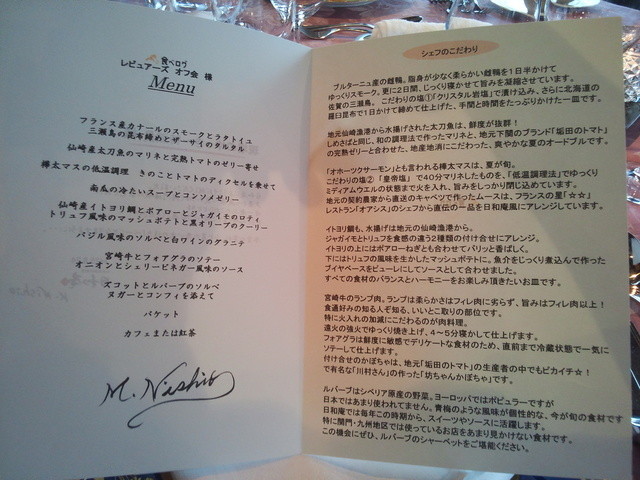 食べログ
レビュアーズ オフ会 様
Menu
フランス産カナールのスモークとラタトイユ
三瀬鳥の昆布締めとザーサイのタルタル
仙崎産太刀魚のマリネと完熟トマトのゼリー寄せ
樺太マスの低温調理 きのことトマトのディクセルを乗せて
南瓜の冷たいスープとコンソメゼリー
仙崎産イトヨリ鯛とポアローとジャガイモのロティ
トリュフ風味のマッシュポテトと黒オリーブのクーリー
バジル風味のソルベと白ワインのグラニテ
宮崎牛とフォアグラのソテー
オニオンとシェリービネガー風味のソース
ズコットとルバーブのソルベ
ヌガーとコンフィを添えて
バケット
カフェまたは紅茶
M. Nishio
シェフのこだわり
ブルターニュ産の雌鴨。脂身が少なく柔らかい雌鴨を1日半かけて
ゆっくりスモーク。更に2日間、じっくり寝かせて旨みを凝縮させています。
佐賀の三瀬鳥。こだわりの塩①「クリスタル岩塩」で漬け込み、さらに北海道の
羅臼昆布で1日かけて締めて仕上げた、手間と時間をたっぷりかけた一皿です。
地元仙崎漁港から水揚げされた太刀魚は、鮮度が抜群!
しめさばと同じ、和の調理法で作ったマリネと、地元下関のブランド「垢田のトマト」
の完熟ゼリーと合わせた、地産地消にこだわった、爽やかな夏のオードブルです。
「オホーツクサーモン」とも言われる樺太マスは、夏が旬。
こだわりの塩② 「皇帝塩」 で40分マリネしたものを、「低温調理法」でゆっくり
ミディアムウエルの状態まで火を入れ、旨みをしっかり閉じ込めています。
地元の契約農家から直送のキャベツで作ったムースは、フランスの星「☆☆」
レストラン「オアシス」のシェフから直伝の一品を日和庵風にアレンジしています。
イトヨリ鯛も、水揚げは地元の仙崎漁港から。
ジャガイモとトリュフを食感の違う2種類の付け合せにアレンジ。
イトヨリの上にはポアローねぎとも合わせてパリッと香ばしく。
下にはトリュフの風味を生かしたマッシュポテトに。魚介をじっくり煮込んで作った
ブイヤベースをピューレにしてソースとして合わせました。
すべての食材のバランスとハーモニーをお楽しみ頂きたいお皿です。
宮崎牛のランプ肉。ランプは柔らかさはフィレ肉に劣らず、旨みはフィレ肉以上!
食通好みの知る人ぞ知る、いいとこ取りの部位です。
特に火入れの加減にこだわるのが肉料理。
遠火の強火でゆっくり焼き上げ、4~5分寝かして仕上げます。
フォアグラは鮮度に敏感でデリケートな食材のため、直前まで冷蔵状態で一気に
ソテーして仕上げます。
付け合せのかぼちゃは、地元「垢田のトマト」の生産者の中でもピカイチ☆!
で有名な「川村さん」の作った「坊ちゃんかぼちゃ」です。
ルバーブはシベリア原産の野菜。ヨーロッパではポピュラーですが
日本ではあまり使われてません。青梅のような風味が個性的な、今が旬の食材です
日和庵では毎年この時期から、スイーツやソースに活躍します。
特に関門・九州地区では使っているお店をあまり見かけない食材です。
この機会にぜひ、ルバーブのシャーベットをご堪能ください。